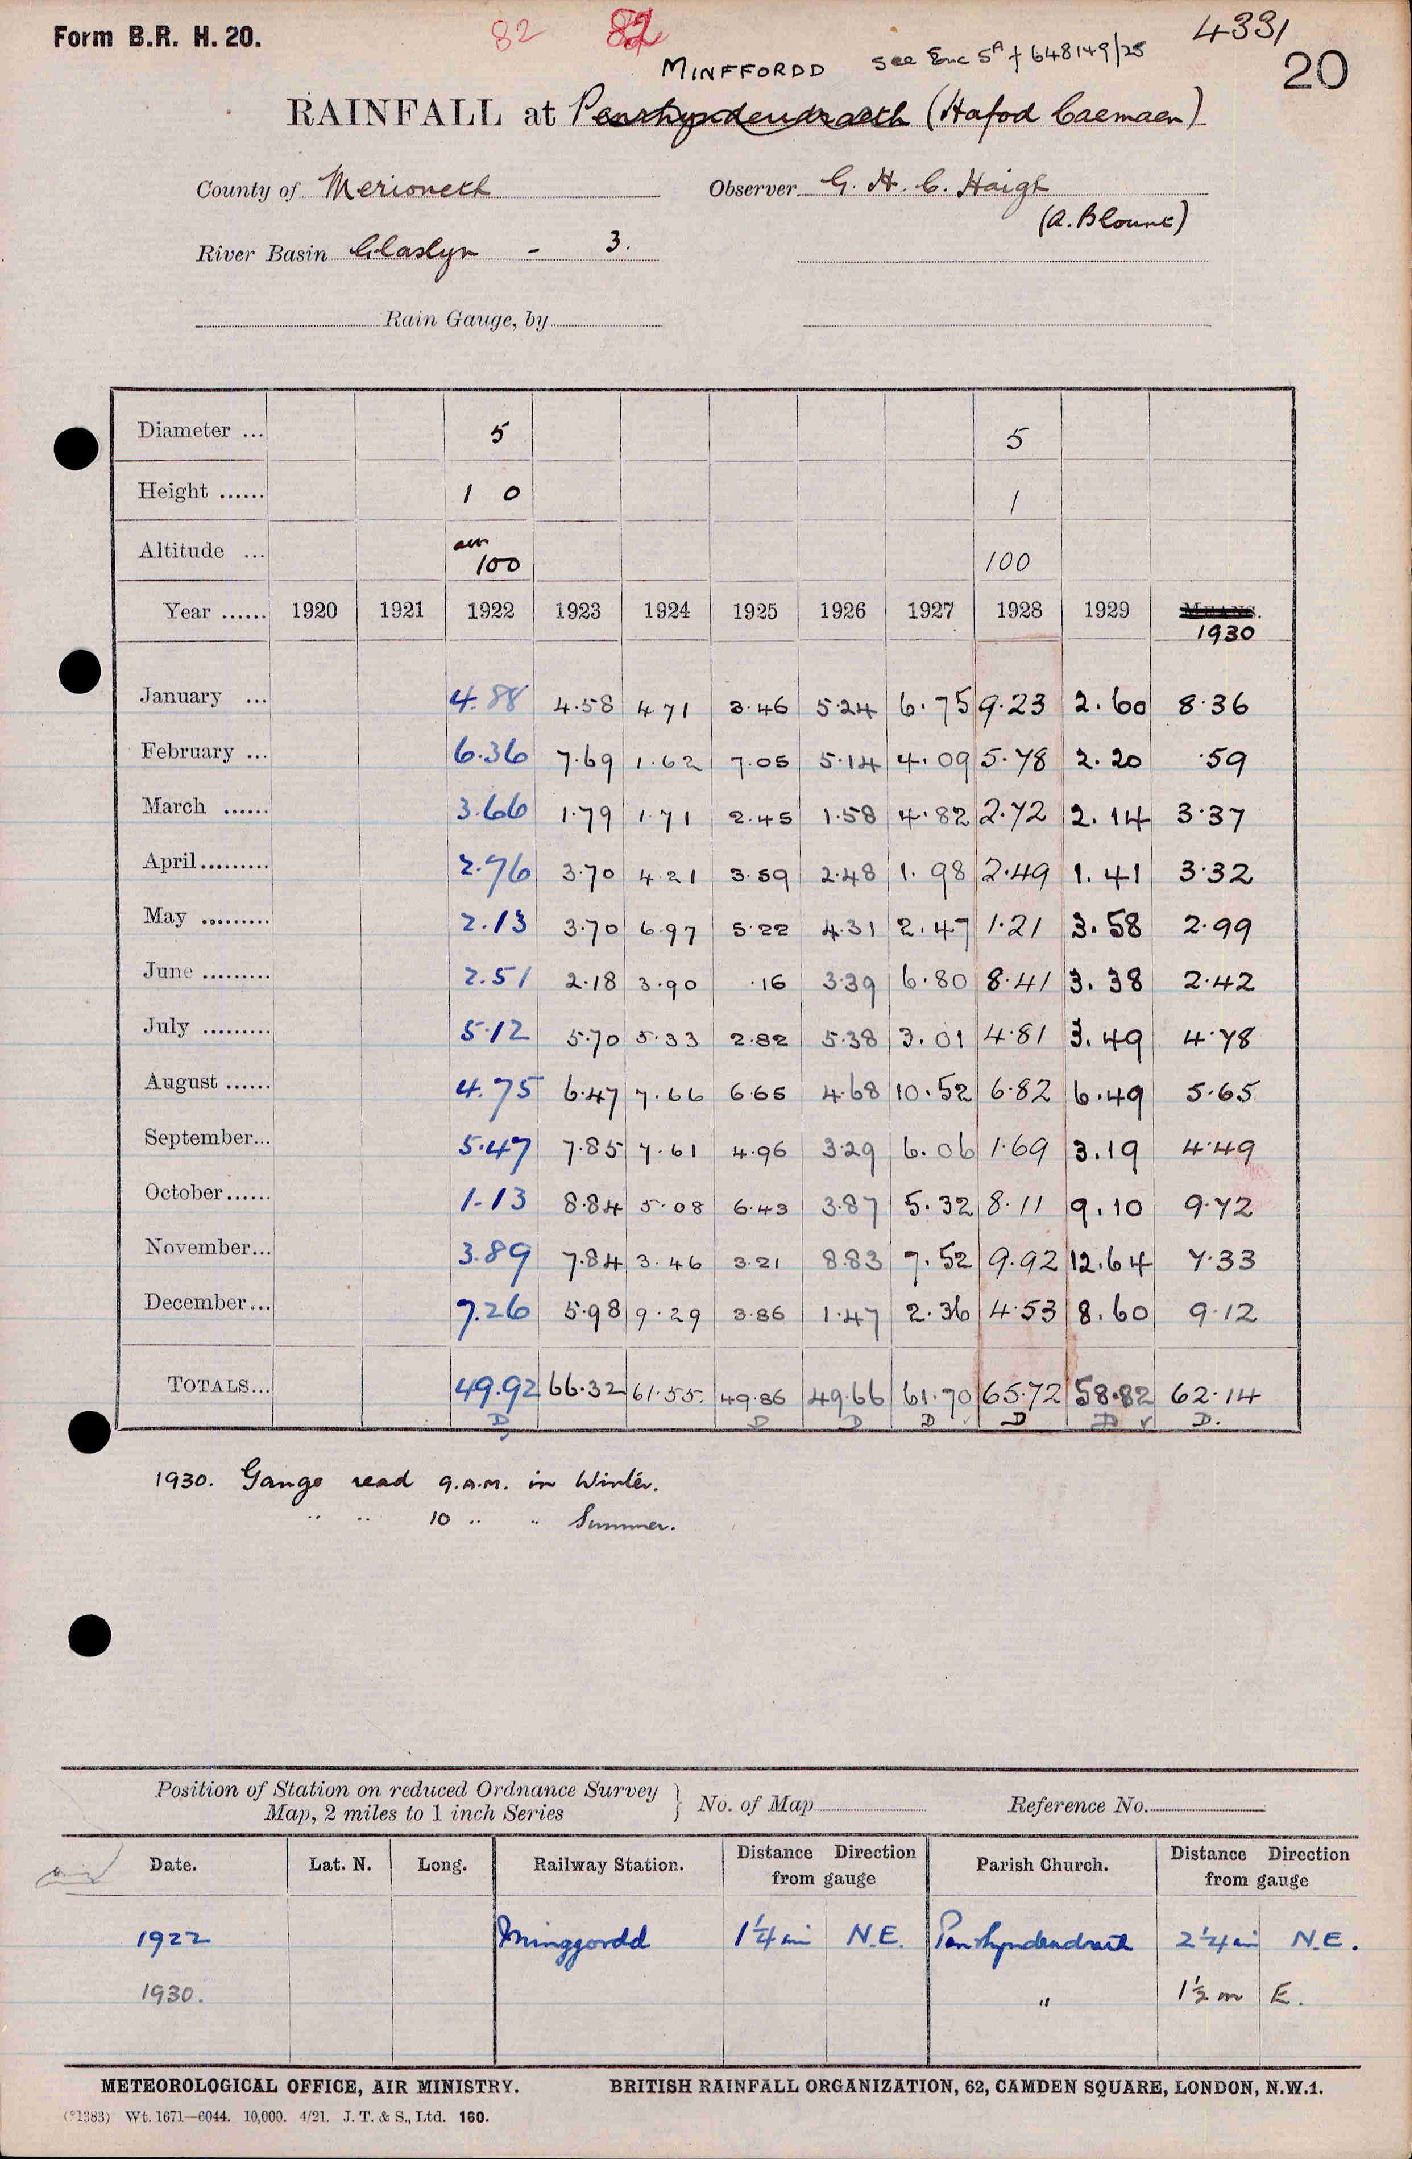 Form B.R. H. 20.
82 82 4331
20
MINFFORDD see Enc 5A of 648149/25
RAINFALL at Penrhyndeudraeth (Hafod Caemaen)
County of Merioneth Observer G. H. C. Haigh
(A. Blount)
River Basin Glaslyn - 3.
Rain Gauge, by
Diameter ... 5 5
Height ...... 1 0 1
Altitude ... 100 100
Year ...... 1920 1921 1922 1923 1924 1925 1926 1927 1928 1929 MEANS.
1930
January ... 4.88 4.58 4.71 3.46 5.24 6.75 9.23 2.60 8.36
February ... 6.36 7.69 1.62 7.05 5.14 4.09 5.78 2.20 .59
March ...... 3.66 1.79 1.71 2.45 1.58 4.82 2.72 2.14 3.37
April ......... 2.76 3.70 4.21 3.59 2.48 1.98 2.49 1.41 3.32
May ......... 2.13 3.70 6.97 5.22 4.31 2.47 1.21 3.58 2.99
June ......... 2.51 2.18 3.90 .16 3.39 6.80 8.41 3.38 2.42
July ......... 5.12 5.70 5.33 2.82 5.38 3.01 4.81 3.49 4.78
August ...... 4.75 6.47 7.66 6.65 4.68 10.52 6.82 6.49 5.65
September... 5.47 7.85 7.61 4.96 3.29 6.06 1.69 3.19 4.49
October...... 1.13 8.84 5.08 6.43 3.87 5.32 8.11 9.10 9.72
November... 3.89 7.84 3.46 3.21 8.83 7.52 9.92 12.64 7.33
December... 7.26 5.98 9.29 3.86 1.47 2.36 4.53 8.60 9.12
TOTALS... 49.92 66.32 61.55. 49.86 49.66 61.70 65.72 58.82 62.14
D D D D D D D.
1930. Gauge read 9.A.M. in Winter.
" " 10 " " Summer.
Position of Station on reduced Ordnance Survey
Map, 2 miles to 1 inch Series } No. of Map Reference No.
Date. Lat. N. Long. Railway Station. Distance from gauge Direction Parish Church. Distance from gauge Direction
1922 Minggordd 1¼ mi N.E. Penrhyndeudraeth 2¼ mi N.E.
1930. " 1½ m E.
METEOROLOGICAL OFFICE, AIR MINISTRY. BRITISH RAINFALL ORGANIZATION, 62, CAMDEN SQUARE, LONDON, N.W.1.
(*1383) Wt. 1671—6044. 10,000. 4/21. J. T. & S., Ltd. 160.